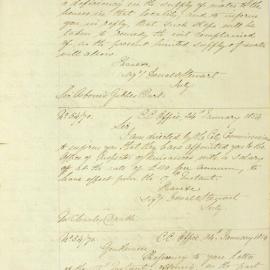 a deficiency in the supply of water to the
houses in that and to inform
you in reply that such steps will be
taken to remedy the evil complained
of as the present limited supply of water
will allow.
I have &c
Sigd Donald Stewart
Secy
No 54/70. C.C. Office, 24th January 1854
Sir,
I am directed by the City Commissioners
to inform you that they have appointed you to the
Office of Inspector of Nuisances with a Salary
of at the rate of per annum, to
have effect from the Instant.
I have &c
Sigd Donald Stewart
Secy
Mr Charles
C.C. Office, 24 January 1854
Gentlemen,
Referring to your letter
of the Instant,